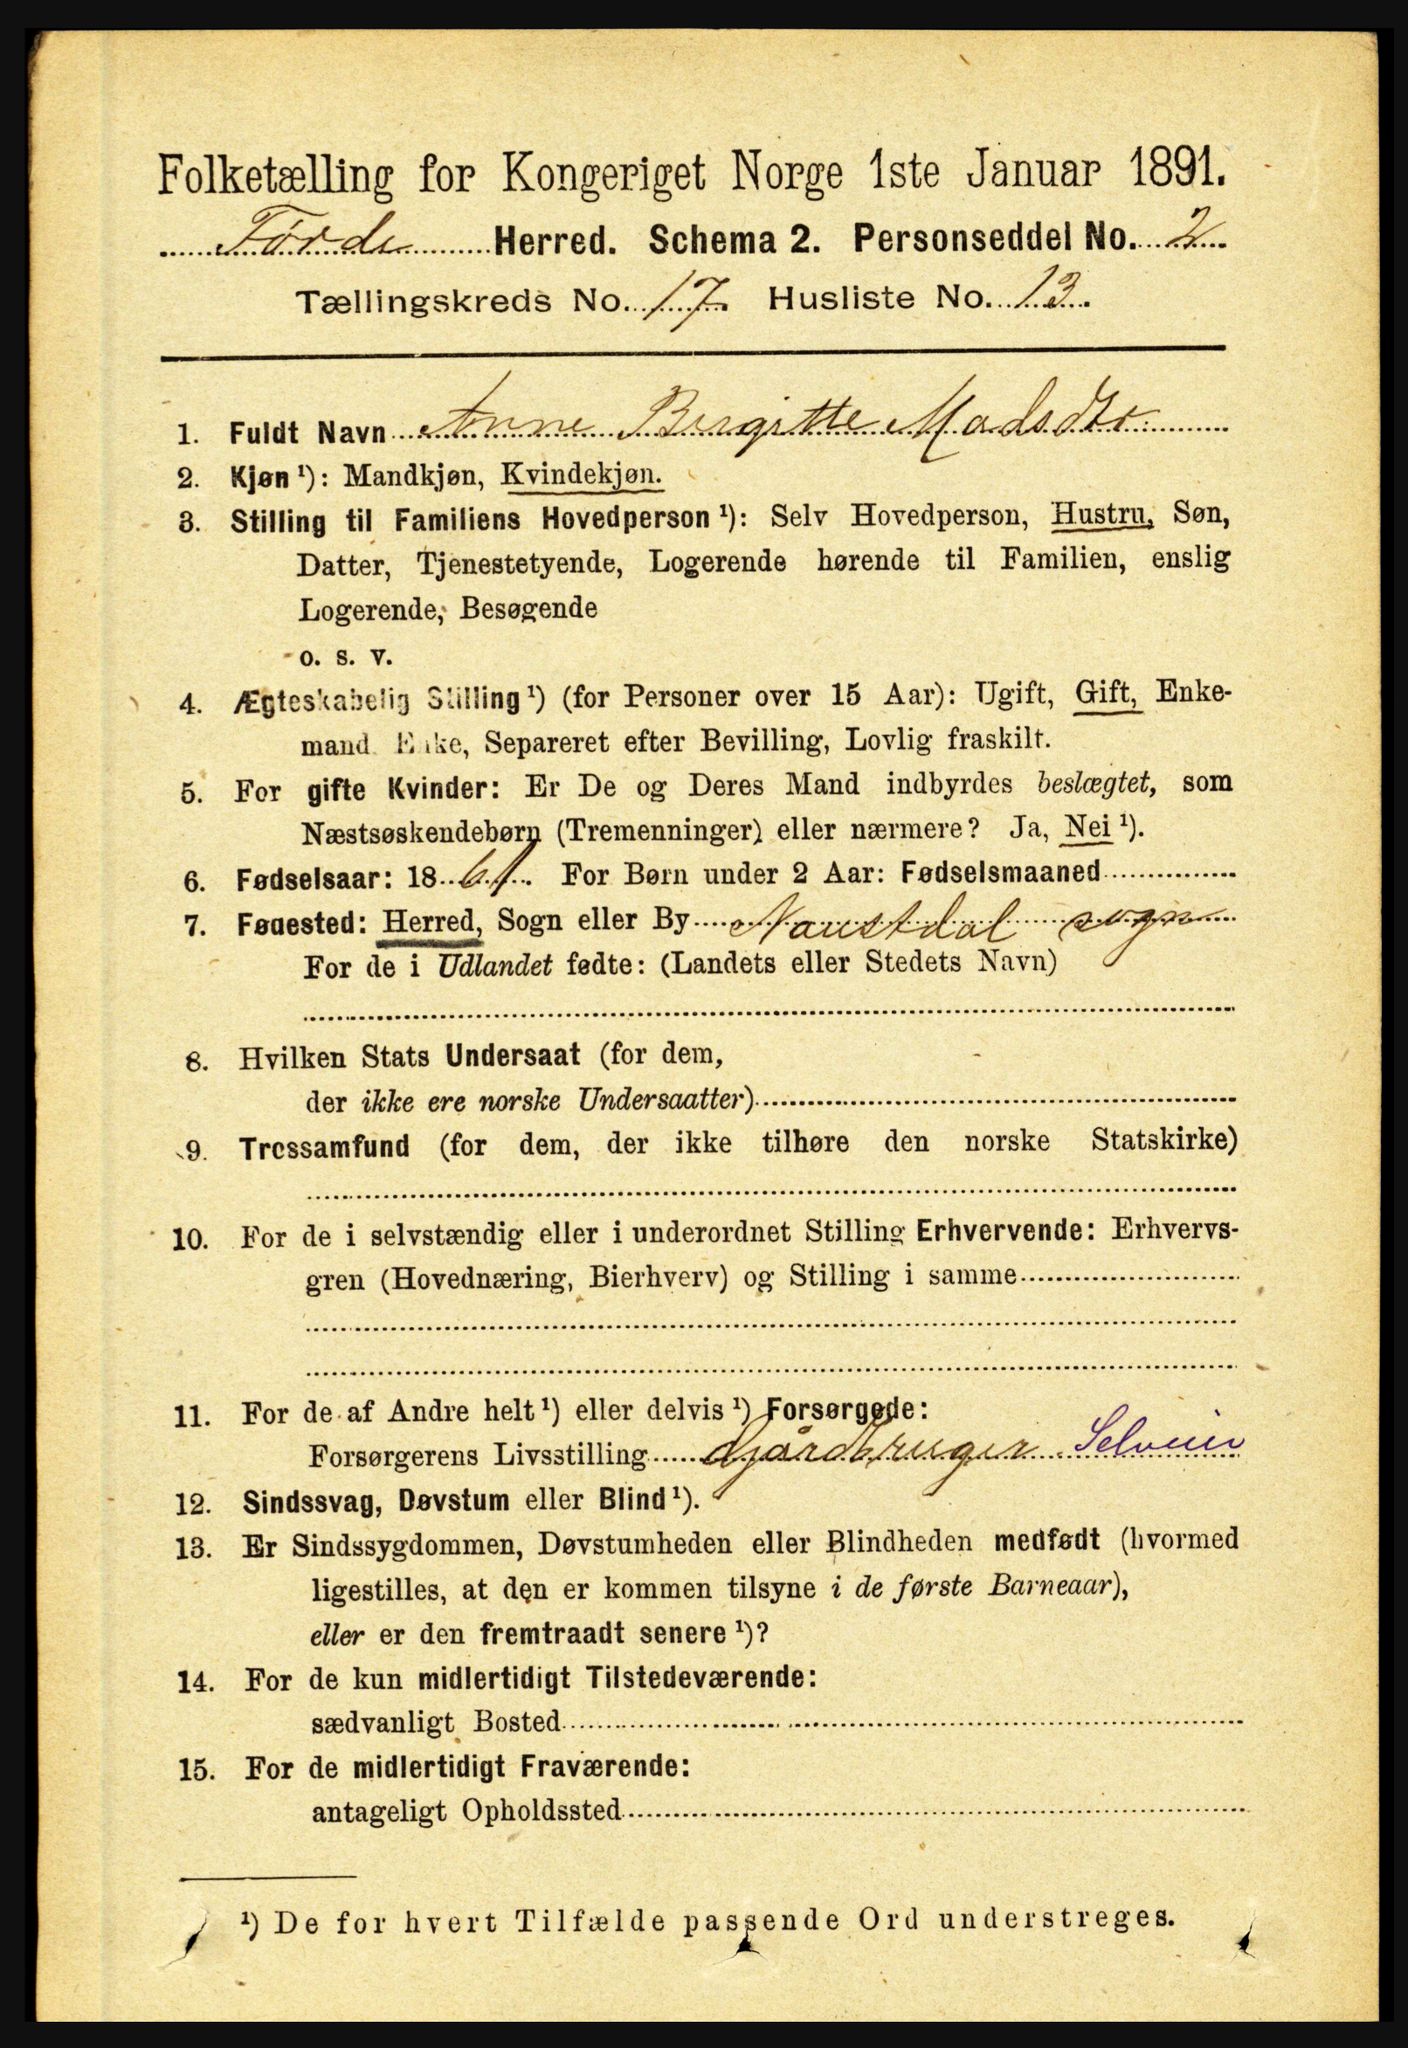 Folketælling for Kongeriget Norge 1ste Januar 1891.
Førde Herred. Schema 2. Personseddel No. 2
Tællingskreds No. 17. Husliste No. 13.
1. Fuldt Navn Anne Birgitte Madsdtr
2. Kjøn ¹): Mandkjøn, Kvindekjøn.
3. Stilling til Familiens Hovedperson ¹): Selv Hovedperson, Hustru, Søn,
Datter, Tjenestetyende, Logerende hørende til Familien, enslig
Logerende, Besøgende
o. s. v.
4. Ægteskabelig Stilling ¹) (for Personer over 15 Aar): Ugift, Gift, Enke-
mand, Enke, Separeret efter Bevilling, Lovlig fraskilt.
5. For gifte Kvinder: Er De og Deres Mand indbyrdes beslægtet, som
Næstsøskendebørn (Tremenninger) eller nærmere? Ja, Nei ¹).
6. Fødselsaar: 1861. For Børn under 2 Aar: Fødselsmaaned
7. Fødested: Herred, Sogn eller By Naustdal sogn
For de i Udlandet fødte: (Landets eller Stedets Navn)
8. Hvilken Stats Undersaat (for dem,
der ikke ere norske Undersaatter)
9. Trossamfund (for dem, der ikke tilhøre den norske Statskirke)
10. For de i selvstændig eller i underordnet Stilling Erhvervende: Erhvervs-
gren (Hovednæring, Bierhverv) og Stilling i samme
11. For de af Andre helt ¹) eller delvis ¹) Forsørgede:
Forsørgerens Livsstilling Gjårdbruger Selveier
12. Sindssvag, Døvstum eller Blind ¹).
13. Er Sindssygdommen, Døvstumheden eller Blindheden medfødt (hvormed
ligestilles, at den er kommen tilsyne i de første Barneaar),
eller er den fremtraadt senere ¹)?
14. For de kun midlertidigt Tilstedeværende:
sædvanligt Bosted
15. For de midlertidigt Fraværende:
antageligt Opholdssted
¹) De for hvert Tilfælde passende Ord understreges.